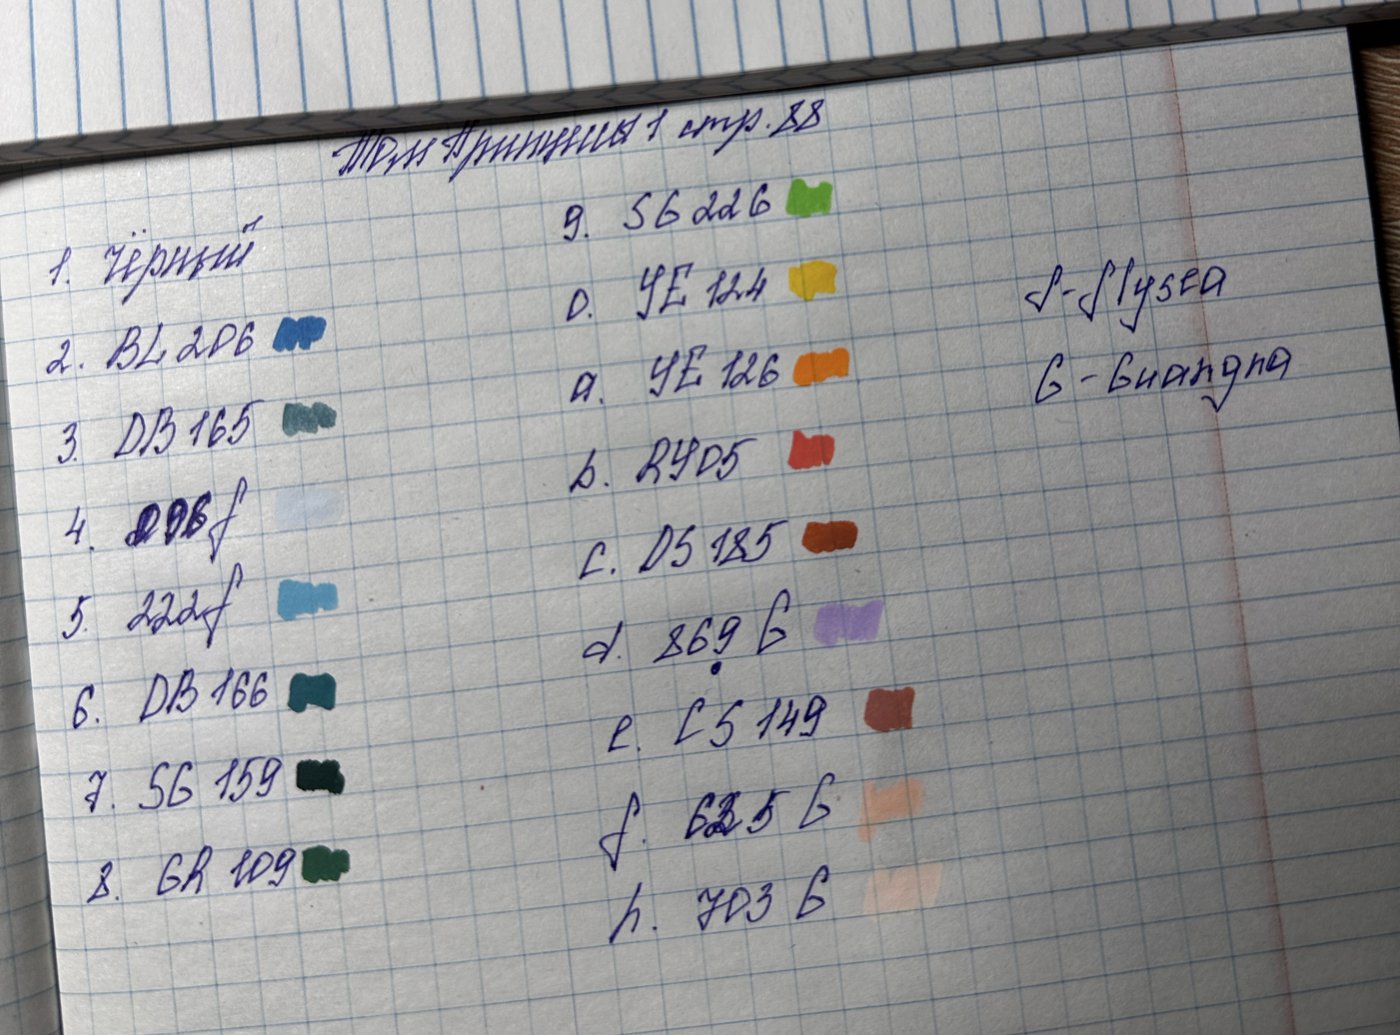 Том Принцессы 1 стр. 88
1. Чёрный
2. BL 206
3. DB 165
4. 296 f
5. 222 f
6. DB 166
7. SG 159
8. GR 109
9. SG 226
0. YE 124
a. YE 126
b. RY05
c. DS 185
d. 869 G
e. CS 149
f. 625 G
h. 703 G
f - flysea
G - Guangna